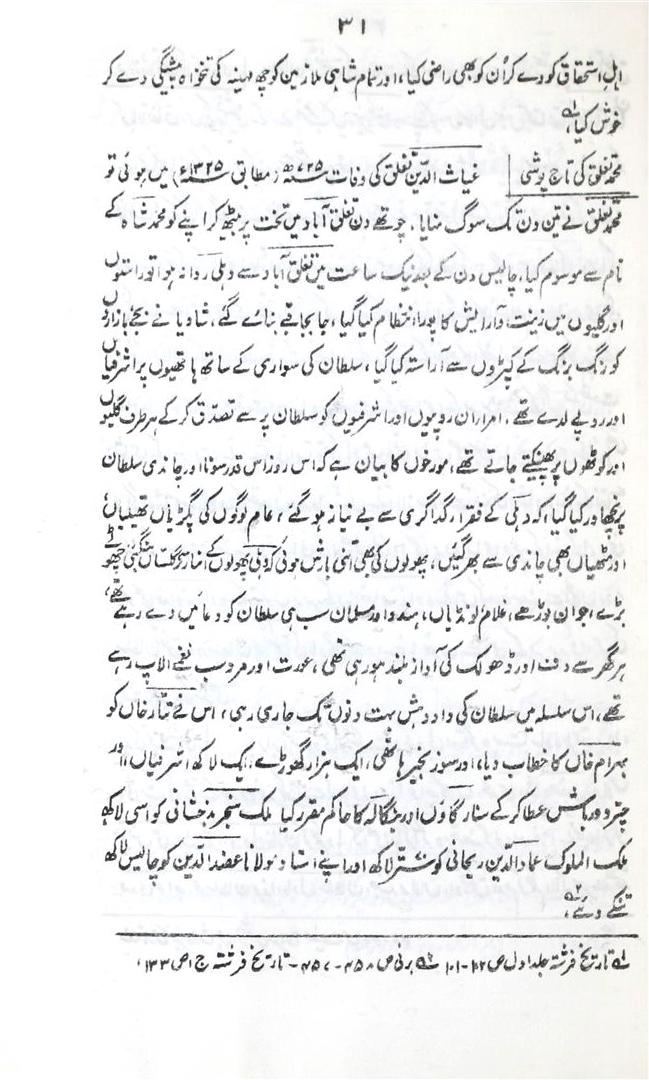 ۳۱
اہلِ استحقاق کو دے کر اُن کو بھی راضی کیا، اور تمام شاہی ملازمین کو چھ مہینہ کی تنخواہ پیشگی دے کر
خوش کیا،
محمد تغلق کی تاج پوشی غیاث الدین تغلق کی وفات ۷۲۵ھ (مطابق ۱۳۲۵ء) میں ہوئی تو
محمد تغلق نے تین دن تک سوگ منایا، چوتھے دن تغلق آباد میں تخت پر بیٹھ کر اپنے کو محمد شاہ کے
نام سے موسوم کیا، چالیس دن کے بعد نیک ساعت میں تغلق آباد سے دہلی روانہ ہوا تو راستوں
اور گلیوں میں زینت و آرایش کا پورا انتظام کیا گیا، جا بجا قبے بنائے گئے، شادیانے بجے بازاروں
کو رنگ برنگ کے کپڑوں سے آراستہ کیا گیا، سلطان کی سواری کے ساتھ ہاتھیوں پر اشرفیاں
اور روپے لدے تھے، امرار ان روپیوں اور اشرفیوں کو سلطان پر سے تصدق کر کے ہر طرف گلیوں
اور کوٹھوں پر پھینکتے جاتے تھے، مورخوں کا بیان ہے کہ اس روز اس قدر سونا اور چاندی سلطان
پر نچھاور کیا گیا، کہ دہلی کے فقرار گداگری سے بے نیاز ہو گئے، عام لوگوں کی پگڑیاں تھیلیاں
اور مٹھیاں بھی چاندی سے بھر گئیں، پھولوں کی بھی اتنی بارش ہوئی کہ دہلی پھولوں کے انبار سے گلستاں بن گئی چھوٹے
بڑے، جوان بوڑھے، غلام لونڈیاں، ہندو اور مسلمان سب ہی سلطان کو دعائیں دے رہے تھے،
ہر گھر سے دف اور ڈھولک کی آواز بلند ہو رہی تھی، عورت اور مرد سب نغمے الاپ رہے
تھے، اس سلسلہ میں سلطان کی داد و دہش بہت دنوں تک جاری رہی، اس نے تتار خاں کو
بہرام خاں کا خطاب دیا، اور سو زنجیر ہاتھی، ایک ہزار گھوڑے، ایک لاکھ اشرفیاں، اور
چتر و دورباش عطا کر کے سنار گاؤں اور بنگالہ کا حاکم مقرر کیا، ملک سنجر بدخشانی کو اسی لاکھ
ملک الملوک عماد الدین ریحانی کو ستر لاکھ اور اپنے استاد مولانا عضد الدین کو چالیس لاکھ
تنکے دیئے،
لہ تاریخ فرشتہ جلد اول ص ۲۲-۱۰۱ ۲ہ برنی ص ۴۵۸-۴۵۷ - تاریخ فرشتہ ج ۱ ص ۱۳۳،